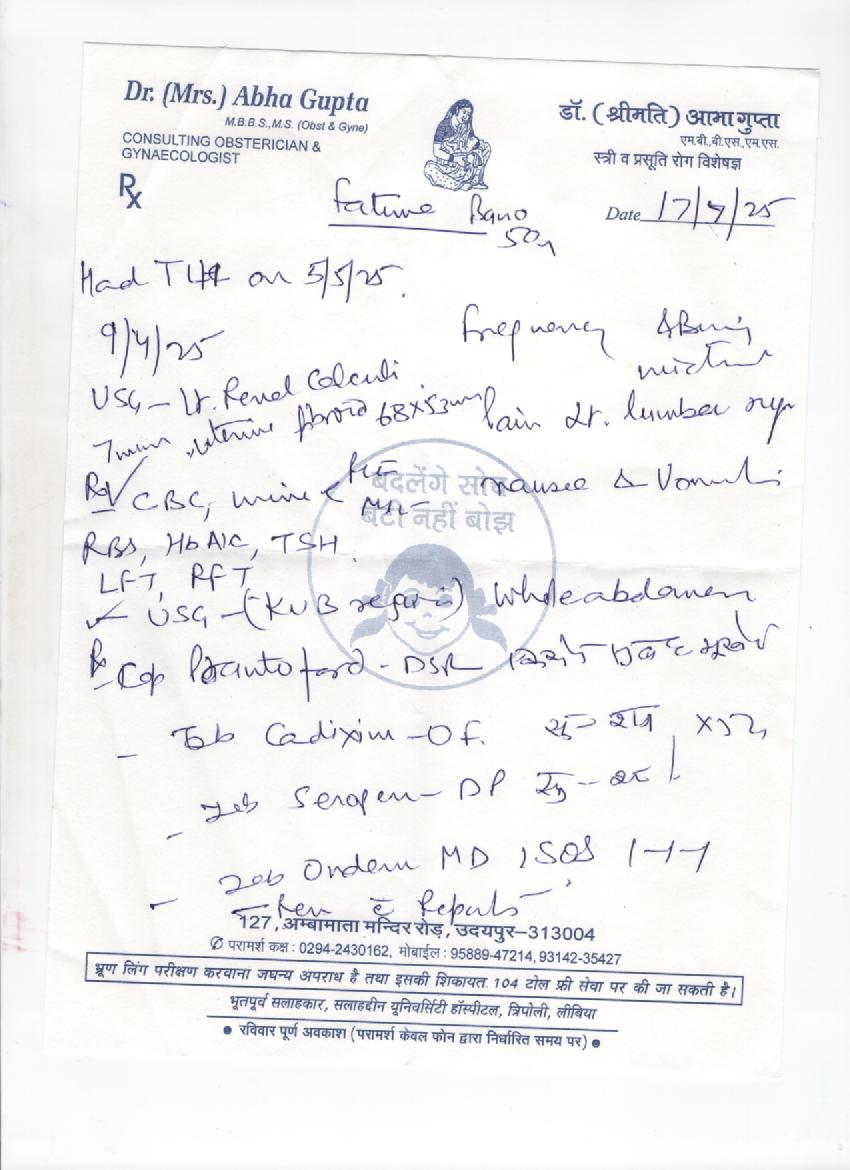 Dr. (Mrs.) Abha Gupta
M.B.B.S., M.S. (Obst & Gyne)
CONSULTING OBSTERICIAN &
GYNAECOLOGIST
डॉ. (श्रीमति) आभा गुप्ता
एम.बी.,बी.एस.,एम.एस.
स्त्री व प्रसूति रोग विशेषज्ञ
Rx
Bano
Date 17/7/25
50y
Had TLH on 5/5/25.
9/4/25
Frequency & Burning
USG - Lt. Renal Calculi
7mm uterine fibroid 68x53mm
Pain Lt. lumber
बदलेंगे सोच
बेटी नहीं बोझ
CBC, urine
nausea & Vomiti
RBS, HbA1C, TSH
LFT, RFT
USG - (KUB region) Whole abdomen
Cap - DSR
- Tab Cadixim - OF.
- Tab - DP
- Tab Ondem MD SOS 1-1-1
Rev c Reports
127, अम्बामाता मन्दिर रोड़, उदयपुर–313004
✆ परामर्श कक्ष : 0294-2430162, मोबाईल : 95889-47214, 93142-35427
भ्रूण लिंग परीक्षण करवाना जघन्य अपराध है तथा इसकी शिकायत 104 टोल फ्री सेवा पर की जा सकती है।
भूतपूर्व सलाहकार, सलाहद्दीन यूनिवर्सिटी हॉस्पीटल, त्रिपोली, लीबिया
● रविवार पूर्ण अवकाश (परामर्श केवल फोन द्वारा निर्धारित समय पर) ●